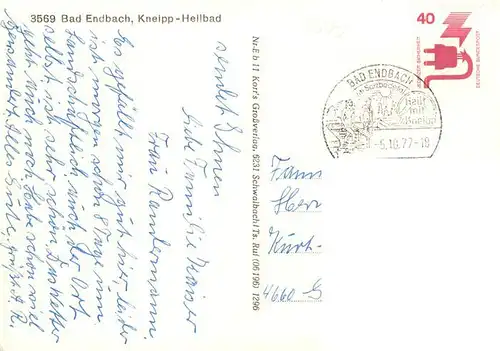 3569 Bad Endbach, Kneipp-Heilbad
sendet Ihnen
liebe Familie Maiser
Frau Randermann.
Es gefällt mir gut hier, leider
ich morgen schon 8 Tage um.
Landschaftlich auch der Ort
selbst ist sehr schön. Das Wetter
geht auch noch. Habe schon viel
gewandert. Alles Gute, grüßt R.
Nr.E h 11 Karl's Großverlag, 6231 Schwalbach/Ts. Ruf (06196) 1296
40
DEUTSCHE BUNDESPOST
BAD ENDBACH
Heilt
mit
Kneipp
-5.10.77-18
Fam
Herr
Kurt-
4660 G